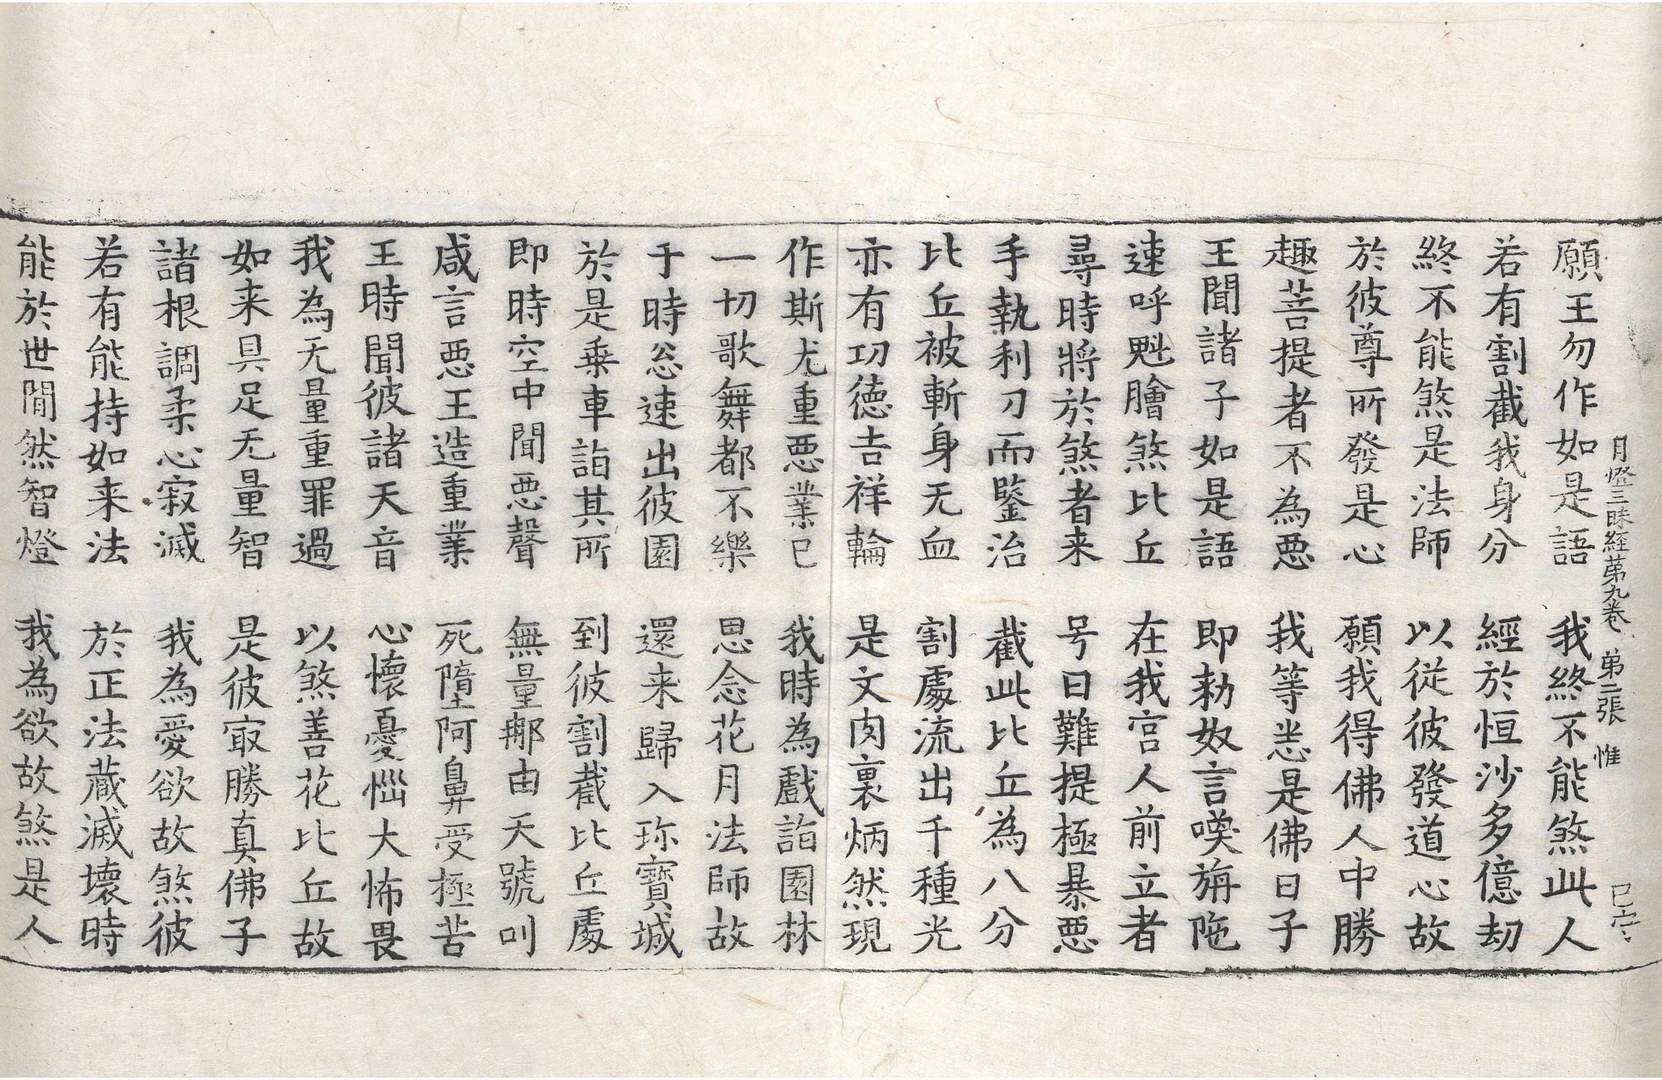 月燈三昧經第九卷 第二張 惟
願王勿作如是語 我終不能煞此人
若有割截我身分 經於恒沙多億劫
終不能煞是法師 以從彼發道心故
於彼尊所發是心 願我得佛人中勝
趣菩提者不為惡 我等悉是佛日子
王聞諸子如是語 即勑奴言喚旃陁
速呼魁膾煞比丘 在我宮人前立者
尋時將於煞者来 号曰難提極暴惡
手執利刀而鑒治 截此比丘為八分
比丘被斬身无血 割處流出千種光
亦有功德吉祥輪 是文肉裏炳然現
作斯尤重惡業已 我時為戲詣園林
一切歌舞都不樂 思念花月法師故
于時忩速出彼園 還来歸入珎寶城
於是乗車詣其所 到彼割截比丘處
即時空中聞惡聲 無量𨙻由天號叫
咸言惡王造重業 死墮阿鼻受極苦
王時聞彼諸天音 心懷憂惱大怖畏
我為无量重罪過 以煞善花比丘故
如来具足无量智 是彼㝡勝真佛子
諸根調柔心寂滅 我為愛欲故煞彼
若有能持如来法 於正法藏滅壞時
能於世間然智燈 我為欲故煞是人